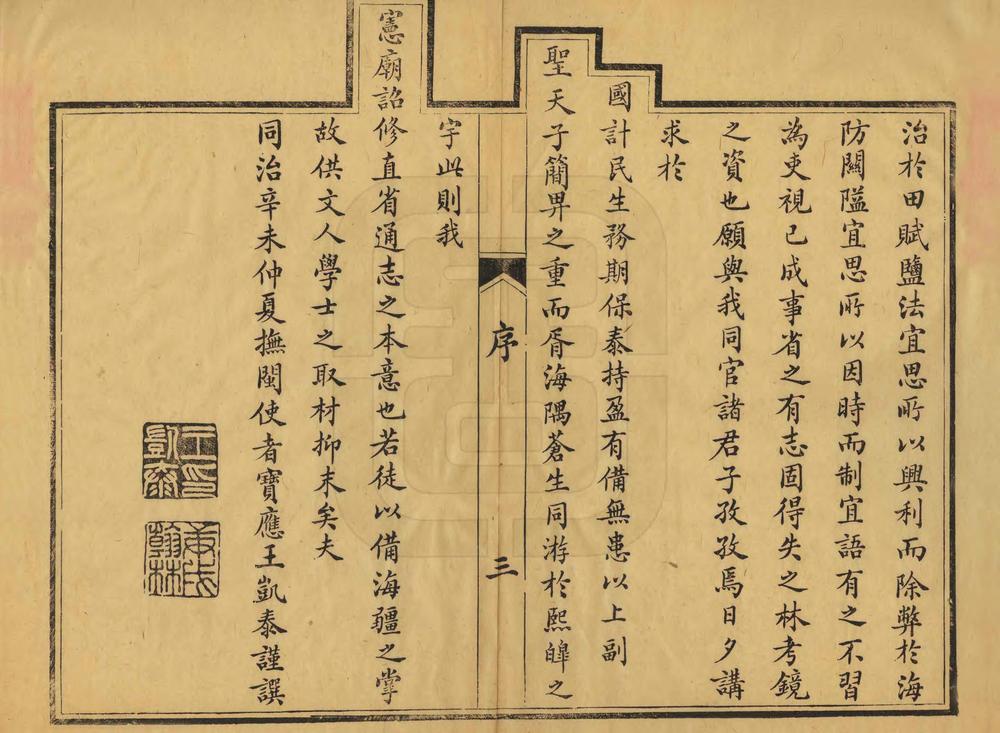 治於田賦鹽法宜思所以興利而除弊於海
防關隘宜思所以因時而制宜語有之不習
為吏視已成事省之有志固得失之林考鏡
之資也願與我同官諸君子孜孜焉日夕講
求於
國計民生務期保泰持盈有備無患以上副
聖天子簡畀之重而胥海隅蒼生同游於熙皥之
序
三
宇此則我
憲廟詔修直省通志之本意也若徒以備海疆之掌
故供文人學士之取材抑末矣夫
同治辛未仲夏撫閩使者寶應王凱泰謹譔
王印凱泰
庚戌翰林